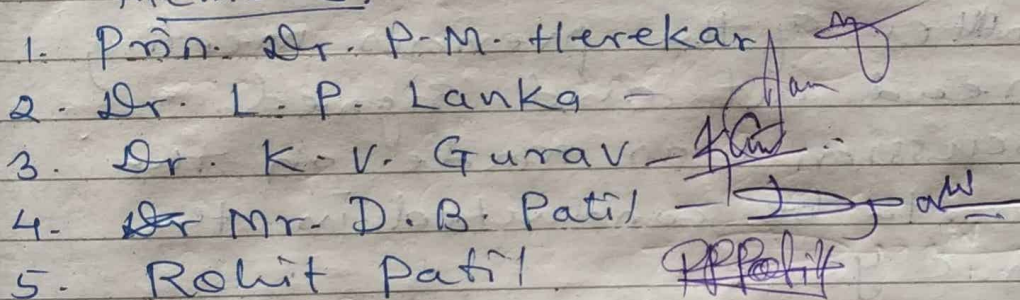 1. Prin. Dr. P.M. Herekar
2. Dr. L. P. Lanka -
3. Dr. K. V. Gurav -
4. Mr. D. B. Patil -
5. Rohit Patil RPPatil